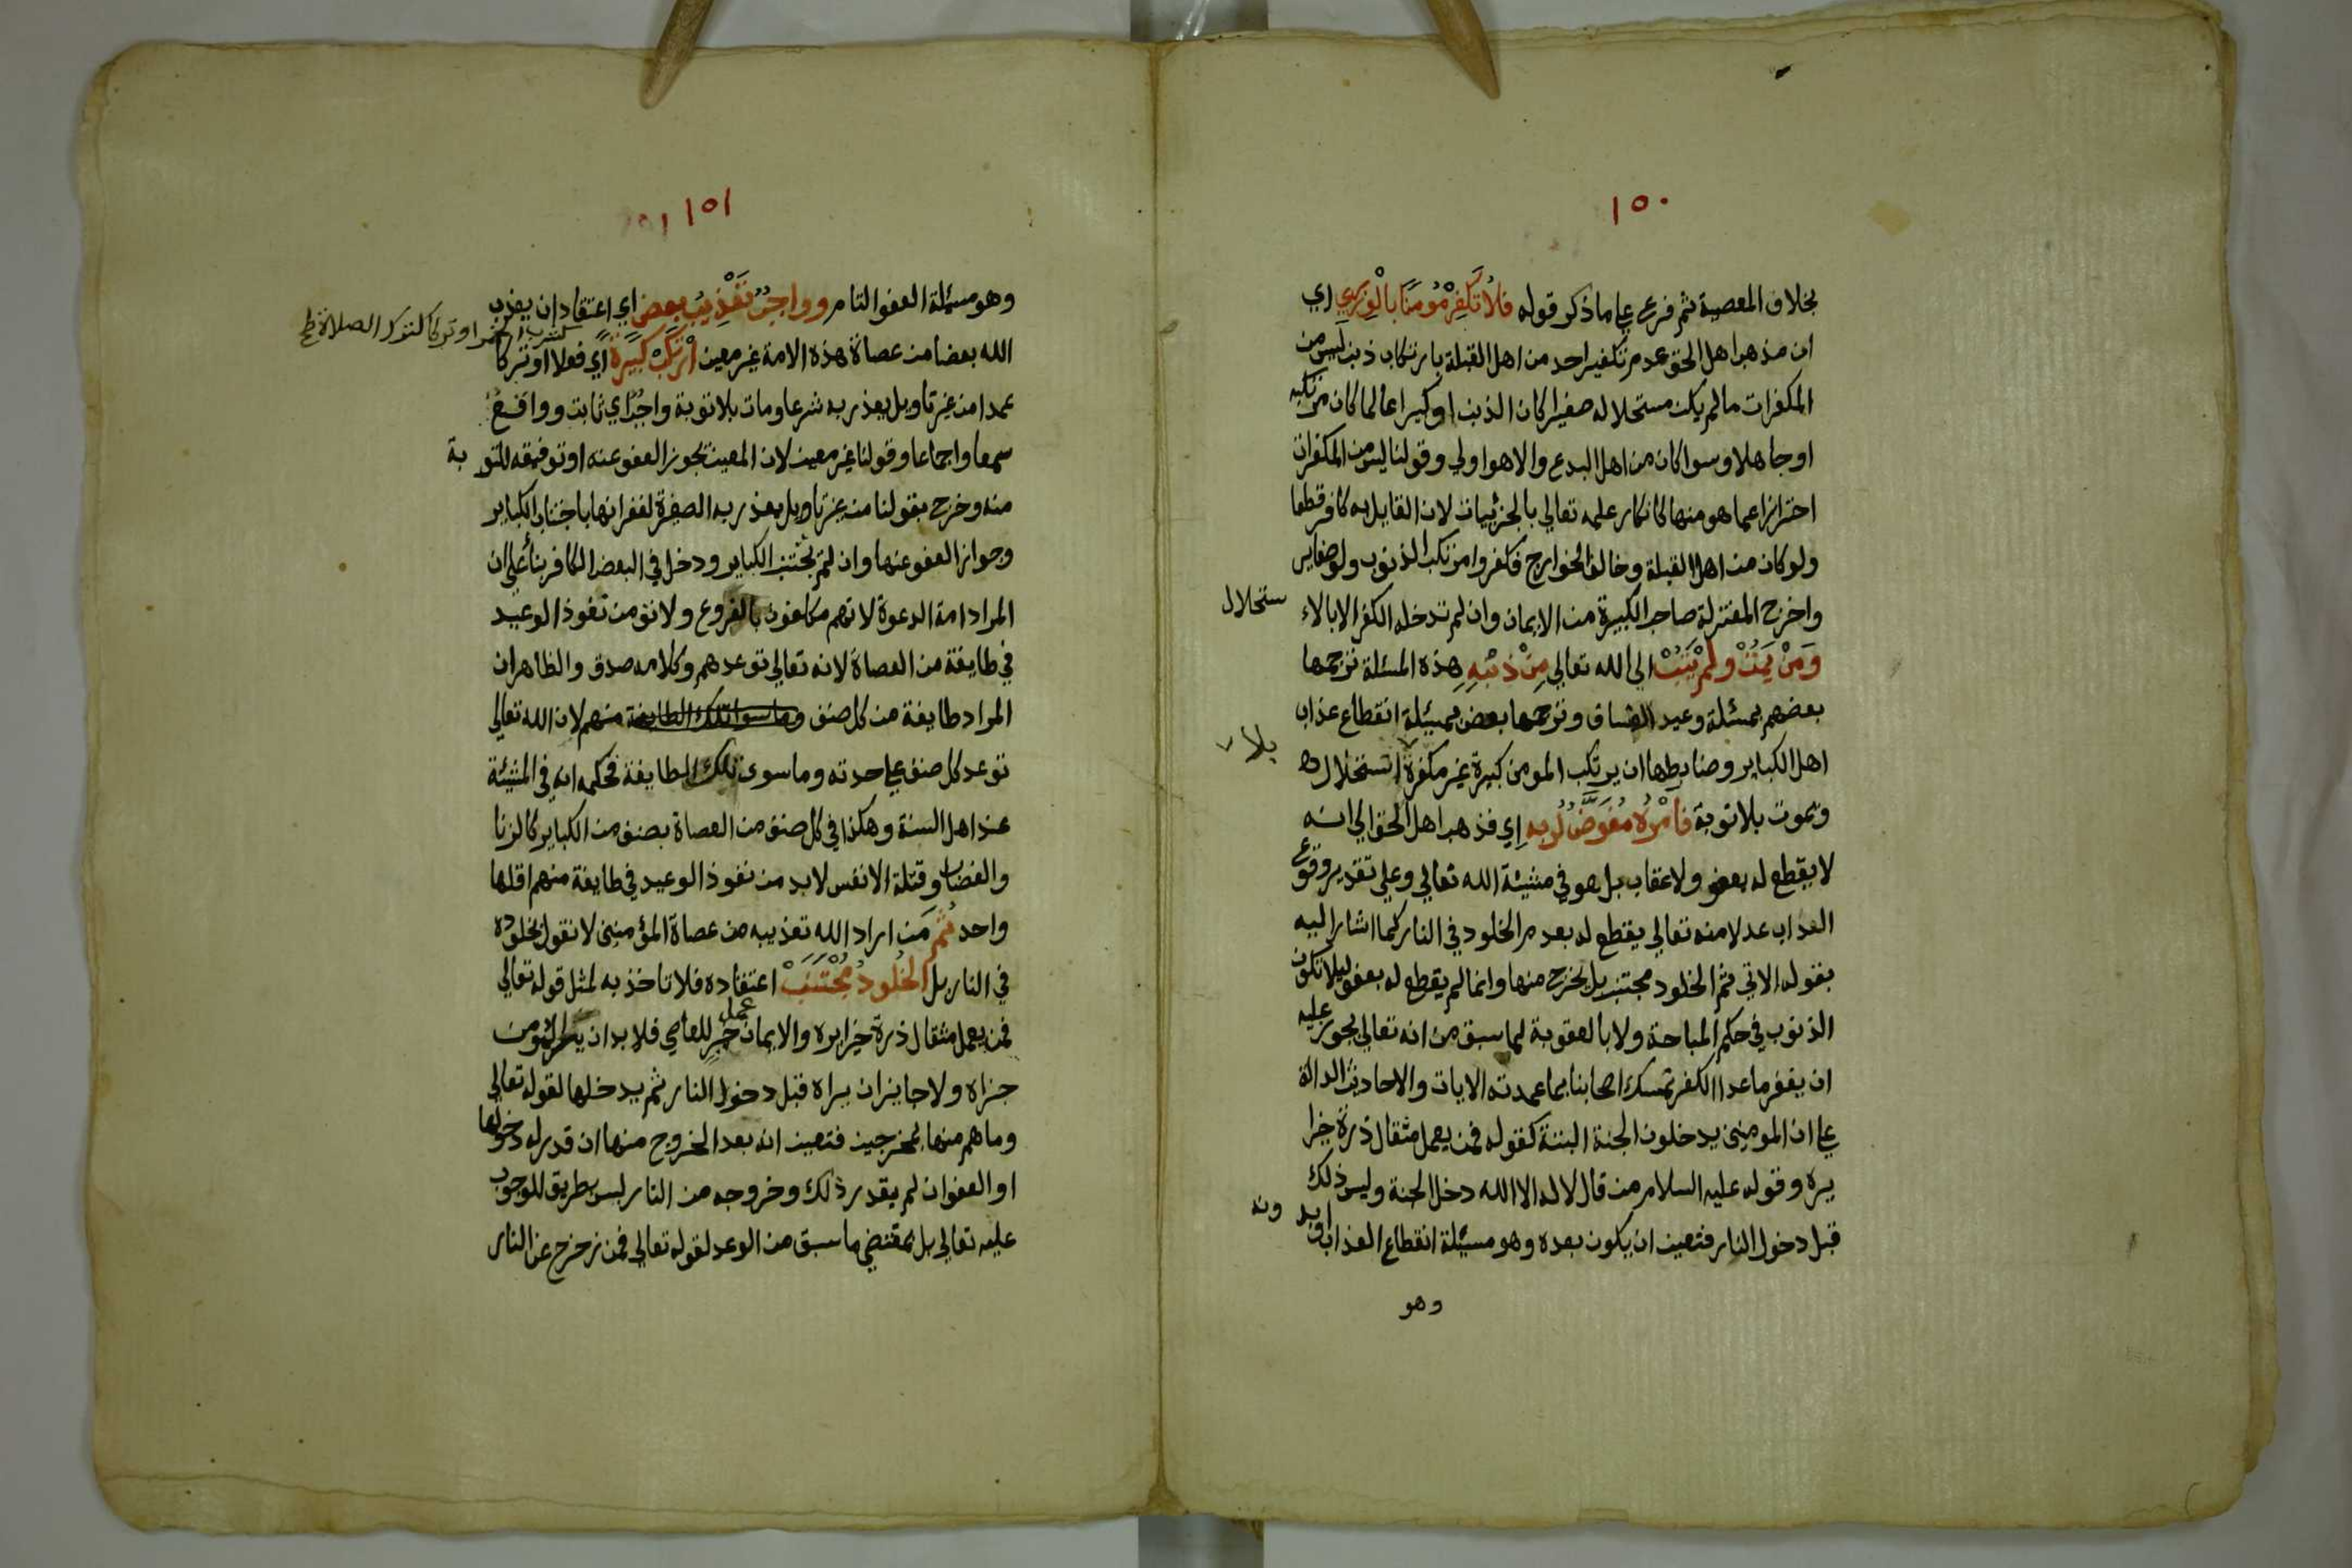 ١٥٠
بخلاف المعصية ثم فرع على ما ذكر قوله فلا تكفر مومنا بالوزر اي
ان مذهب اهل الحق عدم تكفير احد من اهل القبلة بارتكاب ذنب ليس من
المكفرات ما لم يكن مستحلا له صغيرا كان الذنب او كبيرا عالما كان مرتكبه
او جاهلا وسوا كان من اهل البدع والاهوا ولي وقولنا ليس من المكفرات
احترازا عما هو منها كانكار علمه تعالي بالجزئيات لان القايل به كافر قطعا
ولو كان من اهل القبلة وخالف الخوارج فكفروا مرتكب الذنوب ولو صغاير
واخرج المعتزلة صاحب الكبيرة من الايمان وان لم تدخله الكفر الا بالا
ستحلال
وَمَنْ يَمُتْ ولَمْ يَتُبْ الي الله تعالي مِنْ ذَنْبِهِ هذه المسئلة ترجمها
بعضهم بمسئلة وعيد الفساق وترجمها بعض بمسئلة انقطاع عذاب
اهل الكباير وضابطها ان يرتكب المومن كبيرة غير مكفرة استحلال ه
بلا
ويموت بلا توبة فامْرُهُ مُفَوَّضٌ لربه اي فذهب اهل الحق الي انه
لا يقطع له بعفو ولا عقاب بل هو في مشيئة الله تعالي وعلي تقدير وقوع
العذاب عدلا منه تعالي يقطع له بعدم الخلود في النار كما اشار اليه
بقوله الاتي ثم الخلود مجتنب بل يخرج منها وانما لم يقطع له بعفو ليلا تكون
الذنوب في حكم المباحة ولا بالعقوبة لما سبق من انه تعالي يجوز عليه
ان يغفر ما عدا الكفر تمسك اصحابنا بما عمدته الايات والاحاديث الدالة
على ان المومنين يدخلون الجنة البتة كقوله فمن يعمل مثقال ذرة خيرا
يره وقوله عليه السلام من قال لا اله الا الله دخل الجنة وليس ذلك
قبل دخول النار فتعين ان يكون بعده وهو مسئلة انقطاع العذاب او بد
ونه
وهو
١٥١ ١٥١
وهو مسئلة العفو التام وواجبٌ تَعْذِيبُ بعض اي اعتقاد ان يعذب
كشرب الخمر او تركا كترك الصلاة صح
الله بعضا من عصاة هذه الامة غير معين ارْتَكَبْ كَبِيرَةً اي فعلا او تركا
عمدا من غير تاويل يعذر به شرعا ومات بلا توبة واجبٌ اي ثابت وواقع
سمعا واجماعا وقولنا غير معين لان المعين يجوز العفو عنه او توفيقه للتو بة
منه وخرج بقولنا من غير تاويل يعذر به الصغيرة لغفرانها باجتناب الكباير
وجواز العفو عنها وان لم تجتنب الكباير ودخل في البعض الكافر بناء علي ان
المراد امة الدعوة لانهم مكلفون بالفروع ولا بد من نفوذ الوعيد
في طايفة من العصاة لانه تعالي توعدهم وكلامه صدق والظاهر ان
المراد طايفة من كل صنف وما سوا تلك الطايفة منهم لان الله تعالي
توعد كل صنف على حدته وما سوى تلك الطايفة فحكمه انه في المشيئة
عند اهل السنة وهكذا في كل صنف من العصاة بصنف من الكباير كالزنا
والغصاب وقتلة الانفس لا بد من نفوذ الوعيد في طايفة منهم اقلها
واحد ثُم من اراد الله تعذيبه من عصاة المؤمنين لا نقول بخلوده
في النار بل الخُلُودُ مُجْتَنَبْ اعتقاده فلا تاخذ به لمثل قوله تعالي
فمن يعمل مثقال ذرة خيرا يره والايمان عمل خير للعاصي فلا بد ان يري المومن
جزاه ولا جايز ان يراه قبل دخول النار ثم يدخلها لقوله تعالي
وما هم منها بمخرجين فتعين انه بعد الخروج منها ان قدر له دخولها
او العفو ان لم يقدر ذلك وخروجه من النار ليس بطريق الوجوب
عليه تعالي بل بمقتضي ما سبق من الوعد لقوله تعالي فمن زحزح عن النار